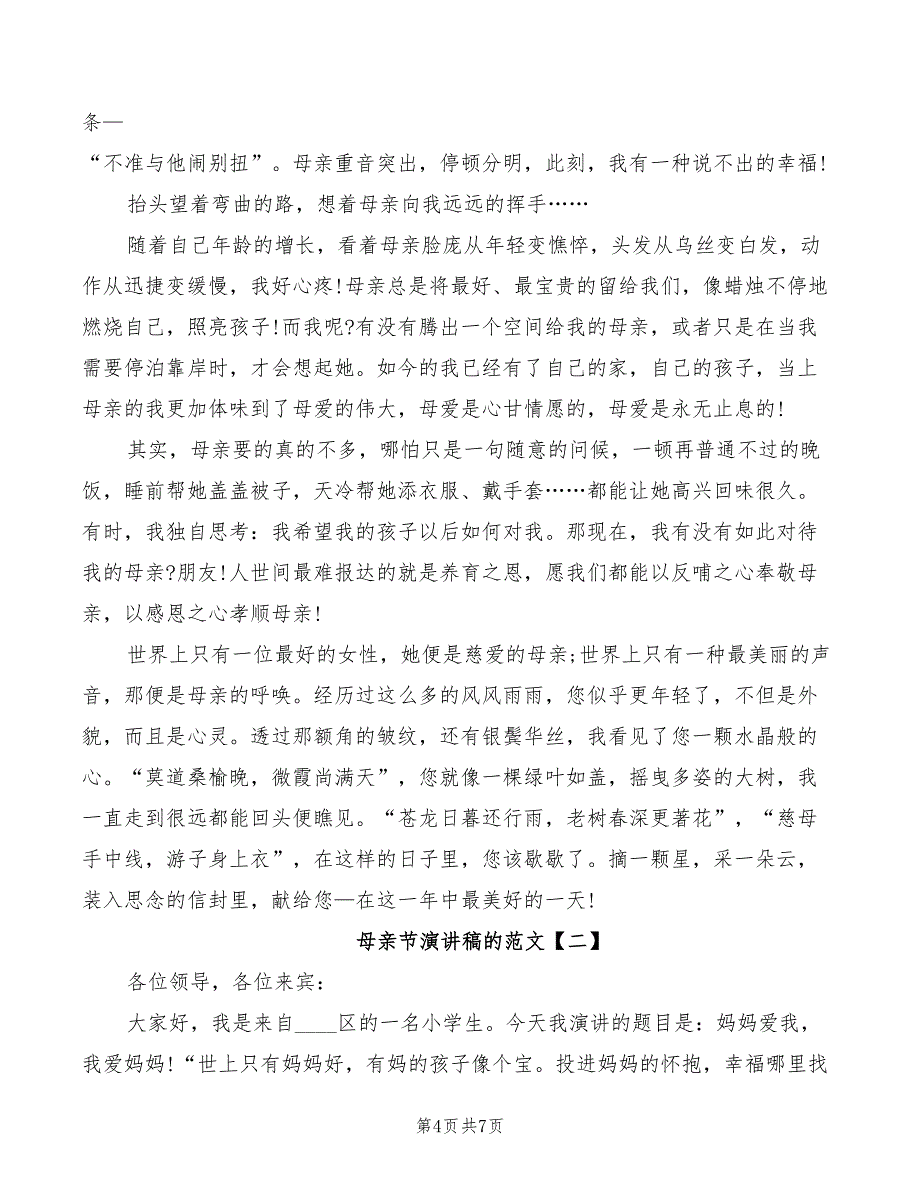 条—
“不准与他闹别扭”。母亲重音突出，停顿分明，此刻，我有一种说不出的幸福!
抬头望着弯曲的路，想着母亲向我远远的挥手……
随着自己年龄的增长，看着母亲脸庞从年轻变憔悴，头发从乌丝变白发，动
作从迅捷变缓慢，我好心疼!母亲总是将最好、最宝贵的留给我们，像蜡烛不停地
燃烧自己，照亮孩子!而我呢?有没有腾出一个空间给我的母亲，或者只是在当我
需要停泊靠岸时，才会想起她。如今的我已经有了自己的家，自己的孩子，当上
母亲的我更加体味到了母爱的伟大，母爱是心甘情愿的，母爱是永无止息的!
其实，母亲要的真的不多，哪怕只是一句随意的问候，一顿再普通不过的晚
饭，睡前帮她盖盖被子，天冷帮她添衣服、戴手套……都能让她高兴回味很久。
有时，我独自思考：我希望我的孩子以后如何对我。那现在，我有没有如此对待
我的母亲?朋友!人世间最难报达的就是养育之恩，愿我们都能以反哺之心奉敬母
亲，以感恩之心孝顺母亲!
世界上只有一位最好的女性，她便是慈爱的母亲;世界上只有一种最美丽的声
音，那便是母亲的呼唤。经历过这么多的风风雨雨，您似乎更年轻了，不但是外
貌，而且是心灵。透过那额角的皱纹，还有银鬓华丝，我看见了您一颗水晶般的
心。“莫道桑榆晚，微霞尚满天”，您就像一棵绿叶如盖，摇曳多姿的大树，我
一直走到很远都能回头便瞧见。“苍龙日暮还行雨，老树春深更著花”，“慈母
手中线，游子身上衣”，在这样的日子里，您该歇歇了。摘一颗星，采一朵云，
装入思念的信封里，献给您—在这一年中最美好的一天!
母亲节演讲稿的范文【二】
各位领导，各位来宾：
大家好，我是来自____区的一名小学生。今天我演讲的题目是：妈妈爱我，
我爱妈妈!“世上只有妈妈好，有妈的孩子像个宝。投进妈妈的怀抱，幸福哪里找
第4页共7页